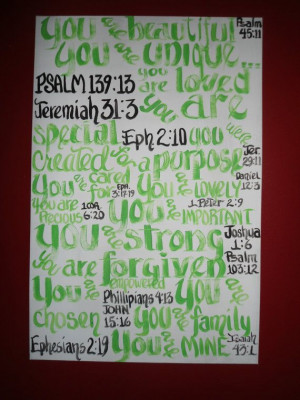 You are beautiful Psalm 45:11
you are UNIQUE...
PSALM 139:13 you are loved
Jeremiah 31:3 you are
special Eph 2:10 you were
created for a purpose Jer. 29:11
You are cared for Eph. 3:17-19 You are LOVELY Daniel 12:3
you are Precious 1 COR. 6:20 you are IMPORTANT 1 Peter 2:9
you are strong Joshua 1:6
you are forgiven Psalm 103:12
You are empowered Phillipians 4:13 You are
chosen JOHN 15:16 you are family
Ephesians 2:19 You are MINE Isaiah 43:1